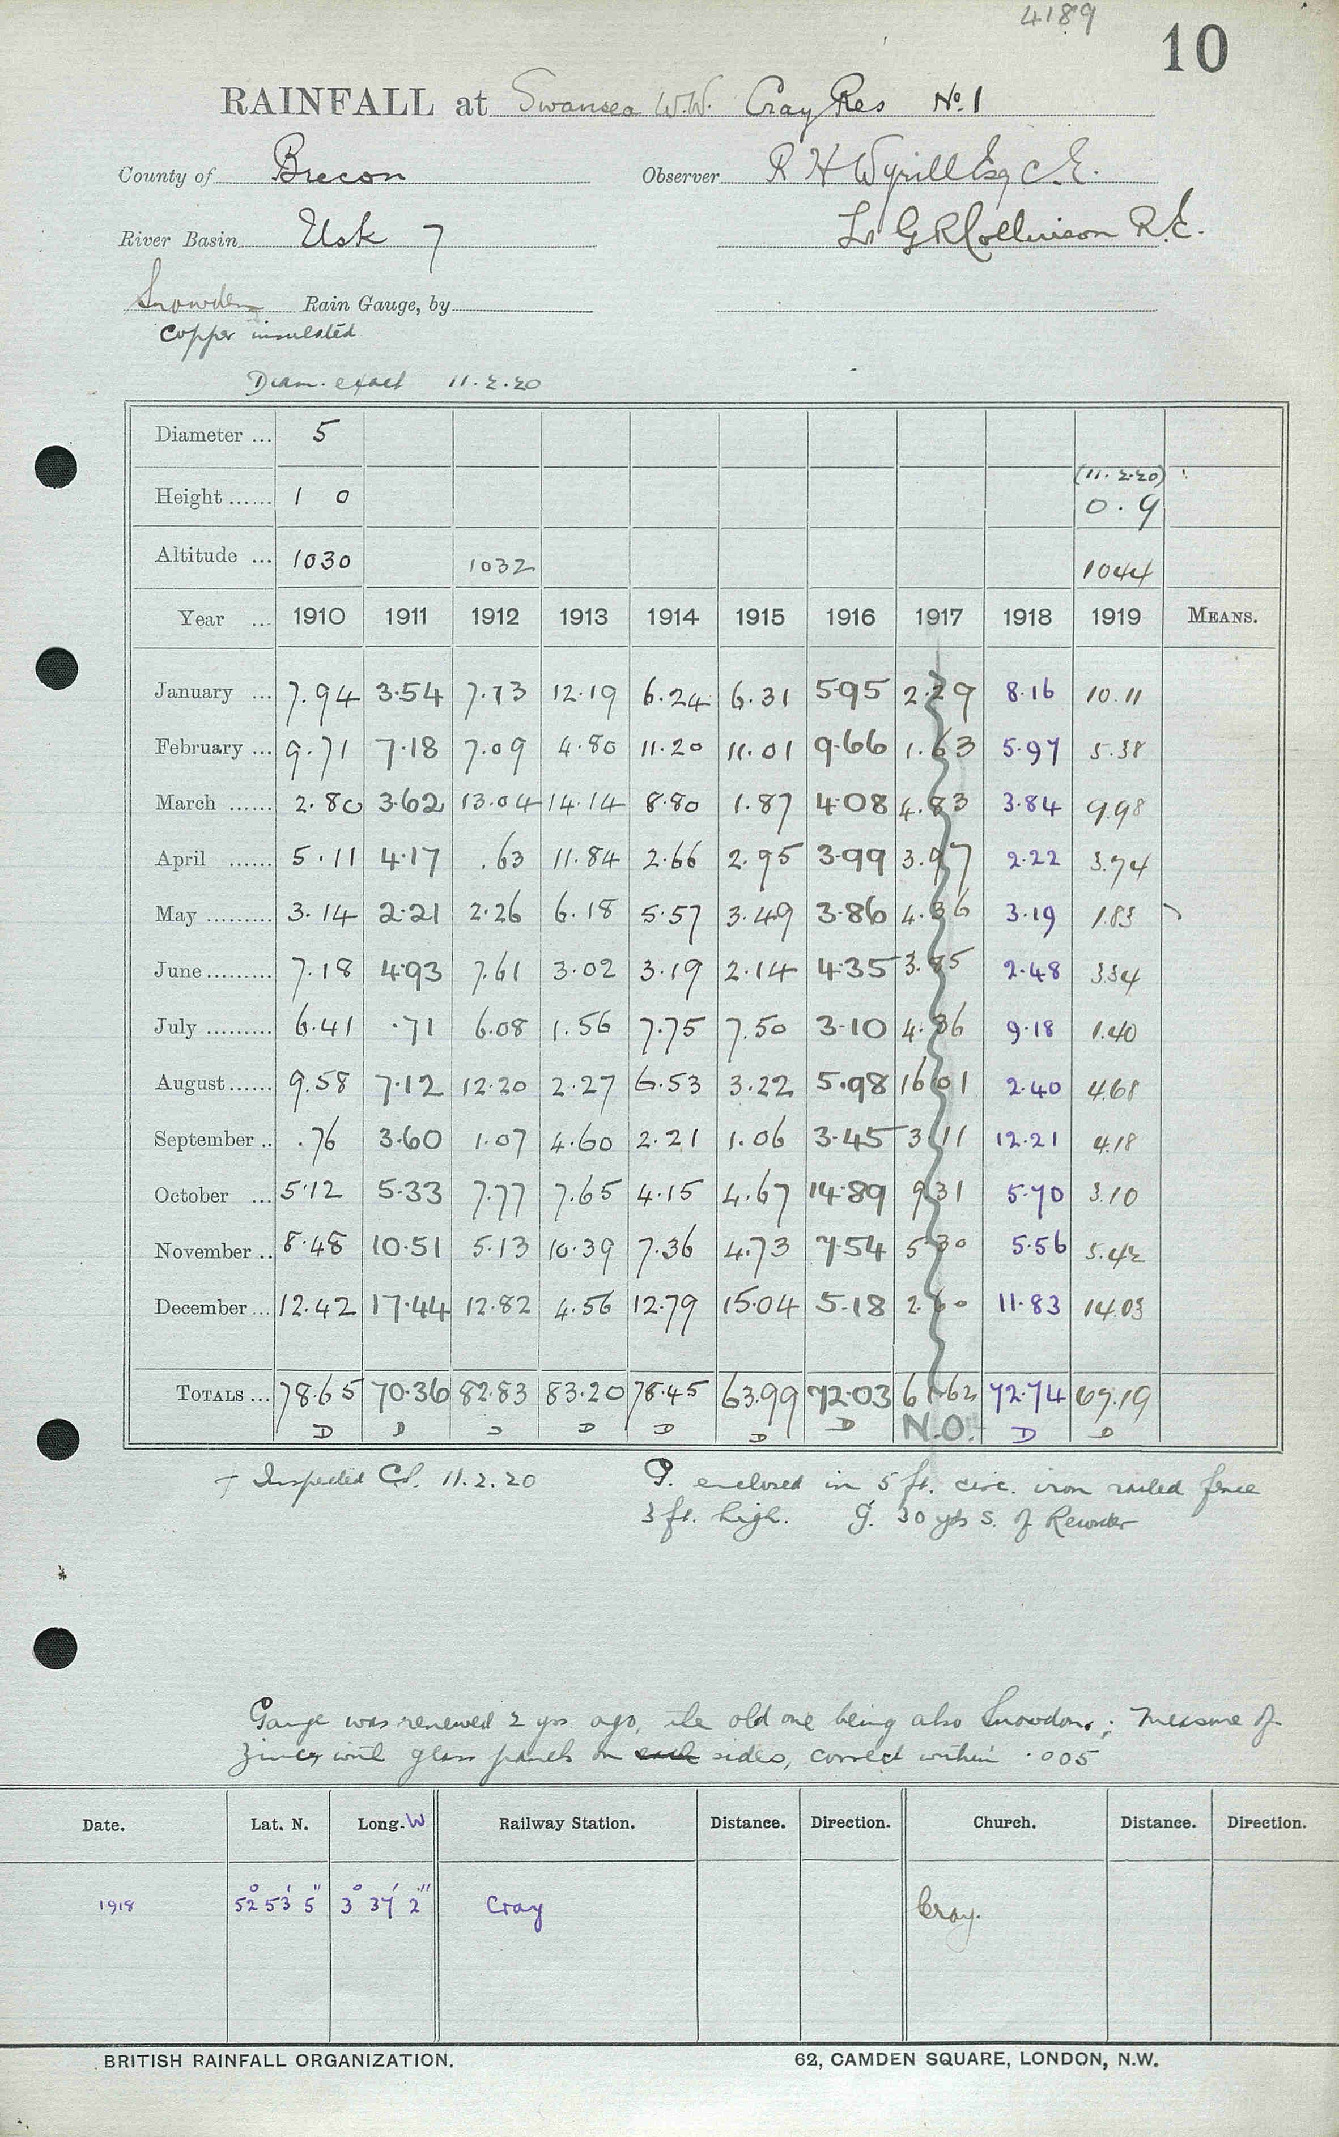 4189
10
RAINFALL at Swansea W.W. Cray Res No. 1
County of Brecon Observer R H Wyrill Esq C.E.
River Basin Usk 7 G R Collinson R.E.
Snowdon Rain Gauge, by
Copper insulated
Diam. exact 11.2.20
Diameter ... 5
(11.2.20)
Height ...... 1 0 0.9
Altitude ... 1030 1032 1044
Year ... 1910 1911 1912 1913 1914 1915 1916 1917 1918 1919 MEANS.
January ... 7.94 3.54 7.13 12.19 6.24 6.31 5.95 2.29 8.16 10.11
February ... 9.71 7.18 7.09 4.80 11.20 11.01 9.66 1.63 5.97 5.38
March ...... 2.80 3.62 13.04 14.14 8.80 1.87 4.08 4.83 3.84 9.98
April ...... 5.11 4.17 .63 11.84 2.66 2.95 3.99 3.97 2.22 3.74
May ......... 3.14 2.21 2.26 6.18 5.57 3.49 3.86 4.36 3.19 1.83
June ......... 7.18 4.93 7.61 3.02 3.19 2.14 4.35 3.85 2.48 3.34
July ......... 6.41 .71 6.08 1.56 7.75 7.50 3.10 4.36 9.18 1.40
August ...... 9.58 7.12 12.20 2.27 6.53 3.22 5.98 16.01 2.40 4.68
September .. .76 3.60 1.07 4.60 2.21 1.06 3.45 3.11 12.21 4.18
October ... 5.12 5.33 7.77 7.65 4.15 4.67 14.89 9.31 5.70 3.10
November .. 8.48 10.51 5.13 10.39 7.36 4.73 7.54 5.30 5.56 5.42
December ... 12.42 17.44 12.82 4.56 12.79 15.04 5.18 2.60 11.83 14.03
TOTALS ... 78.65 70.36 82.83 83.20 78.45 63.99 72.03 61.62 72.74 67.19
D D D D D D D N.O. D D
† Inspected 11.2.20 G. enclosed in 5 ft. circ. iron railed fence
3 ft. high. G. 30 yds S. of Recorder
Gauge was renewed 2 yrs ago, the old one being also Snowdon; measure of
zinc, with glass panels on each sides, correct within .005
Date. Lat. N. Long. W Railway Station. Distance. Direction. Church. Distance. Direction.
1918 52° 53' 5" 3° 37' 2" Cray Cray.
BRITISH RAINFALL ORGANIZATION. 62, CAMDEN SQUARE, LONDON, N.W.